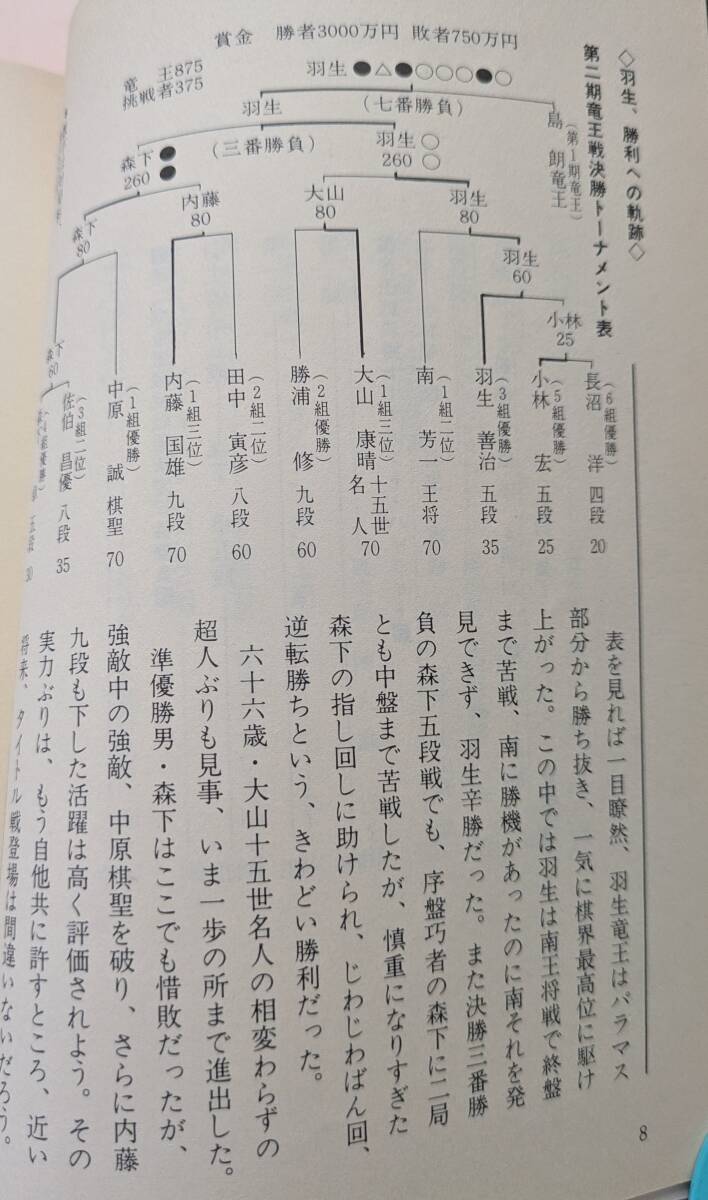 ◇羽生、勝利への軌跡◇
第二期竜王戦決勝トーナメント表
賞金　勝者3000万円　敗者750万円
竜　王875
挑戦者375
羽生 ●△●○○○●○
(七番勝負)
島　朗竜王
(第1期竜王)
羽生
(三番勝負)
森下 ●●
260
羽生 ○○
260
森下
80
内藤
80
大山
80
羽生
80
羽生
60
小林
25
森下
60
(6組優勝)
長沼　洋 四段 20
(5組優勝)
小林　宏 五段 25
(3組優勝)
羽生 善治 五段 35
(1組二位)
南　芳一 王将 70
(1組三位)
大山 康晴 十五世名人 70
(2組優勝)
勝浦　修 九段 60
(2組二位)
田中 寅彦 八段 60
(1組三位)
内藤 国雄 九段 70
(1組優勝)
中原　誠 棋聖 70
(3組二位)
佐伯 昌優 八段 35
組優勝)
五段 30
表を見れば一目瞭然、羽生竜王はパラマス
部分から勝ち抜き、一気に棋界最高位に駆け
上がった。この中では羽生は南王将戦で終盤
まで苦戦、南に勝機があったのに南それを発
見できず、羽生辛勝だった。また決勝三番勝
負の森下五段戦でも、序盤巧者の森下に二局
とも中盤まで苦戦したが、慎重になりすぎた
森下の指し回しに助けられ、じわじわばん回、
逆転勝ちという、きわどい勝利だった。
六十六歳・大山十五世名人の相変わらずの
超人ぶりも見事、いま一歩の所まで進出した。
準優勝男・森下はここでも惜敗だったが、
強敵中の強敵、中原棋聖を破り、さらに内藤
九段も下した活躍は高く評価されよう。その
実力ぶりは、もう自他共に許すところ、近い
将来、タイトル戦登場は間違いないだろう。
8